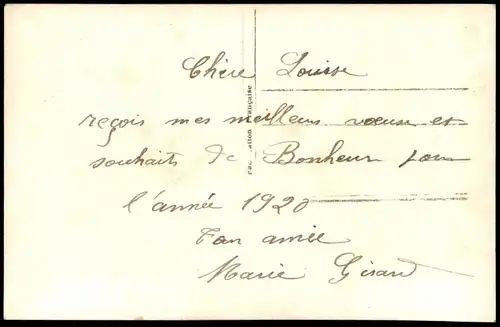 Chère Louise
reçois mes meilleurs voeuse et
souhaits de Bonheur pour
l'année 1920
Ton amie
Marie Girard